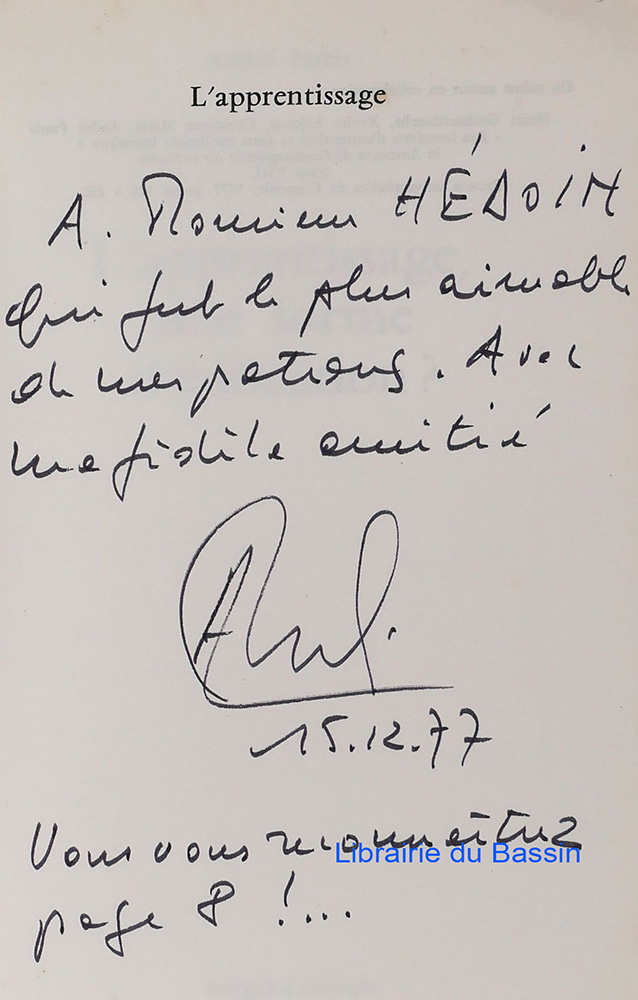 L'apprentissage
A. Monsieur HÉDOIN
qui fut le plus aimable
de mes patrons. Avec
ma fidèle amitié
15.12.77
Vous vous reconnaîtrez
Librairie du Bassin
page 8 !...